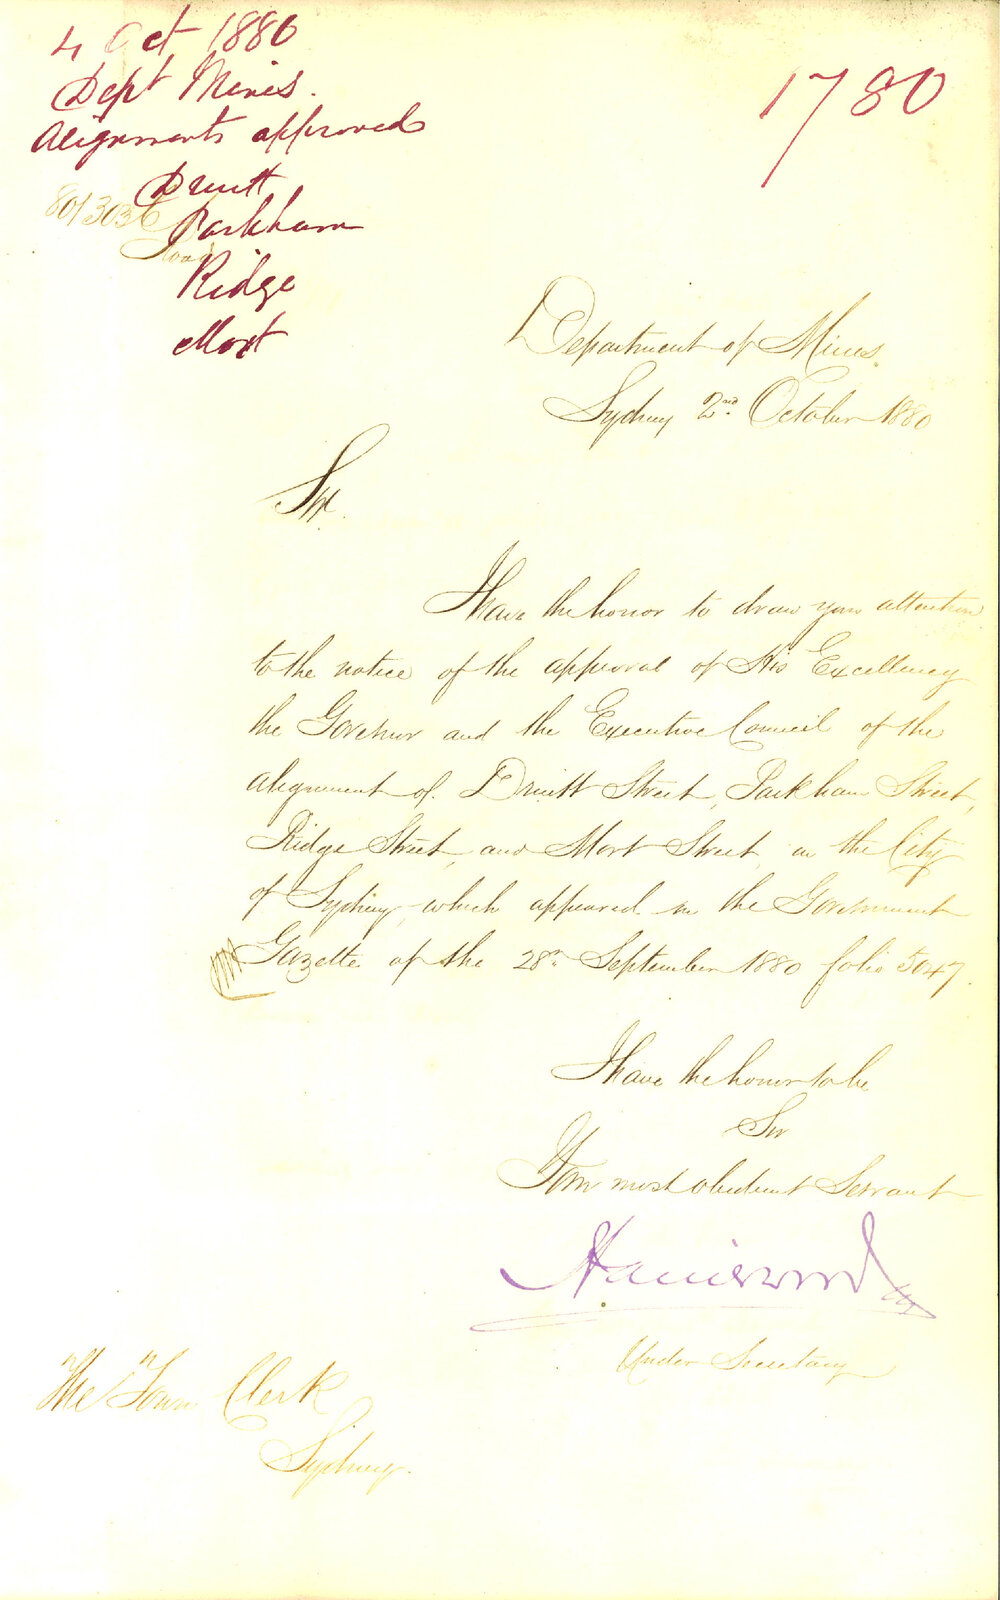 4 Oct 1880
Dept Mines.
Alignments approved
Druitt
Parkham
Ridge
Mort
1780
80/3036
Roads
Department of Mines.
Sydney 2nd. October 1880
Sir.
I have the honor to draw your attention
to the notice of the approval of His Excellency
the Governor and the Executive Council of the
alignment of Druitt Street, Parkham Street,
Ridge Street, and Mort Street, in the City
of Sydney which appeared in the Government
Gazette of the 28th September 1880 folio 5047.
I have the honor to be
Sir
Your most obedient Servant
Under Secretary
The Town Clerk
Sydney.